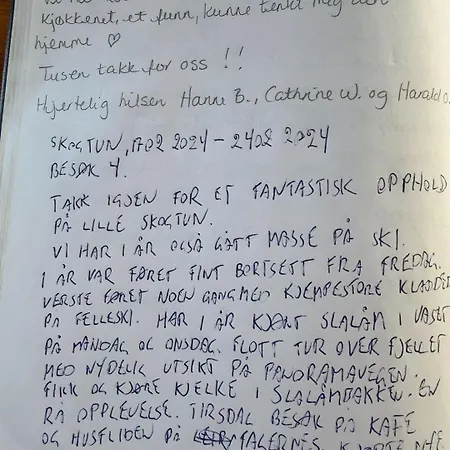 Kjøkkenet, et funn, kunne tenkt meg den
hjemme ♡
Tusen takk for oss !!
Hjertelig hilsen Hanne B., Cathrine W. og Harald O.
SKOGTUN, 1702 2024 - 2402 2024
BESØK 4.
TAKK IGJEN FOR ET FANTASTISK OPPHOLD
PÅ LILLE SKOGTUN.
VI HAR I ÅR OGSÅ GÅTT MASSE PÅ SKI.
I ÅR VAR FØRET FINT BORTSETT FRA FREDAG.
VERSTE FØRET NOEN GANG MED KJEMPESTORE KLADDER
PÅ FELLESKI. HAR I ÅR KJØRT SLALÅM I VASET
PÅ MANDAG OG ONSDAG. FLOTT TUR OVER FJELLET
MED NYDELIG UTSIKT PÅ PANORAMAVEGEN.
FIKK OG KJØRE KJELKE I SLALÅMBAKKEN. EN
RÅ OPPLEVELSE. TIRSDAG BESØK PÅ KAFE
OG HUSFLIDEN PÅ